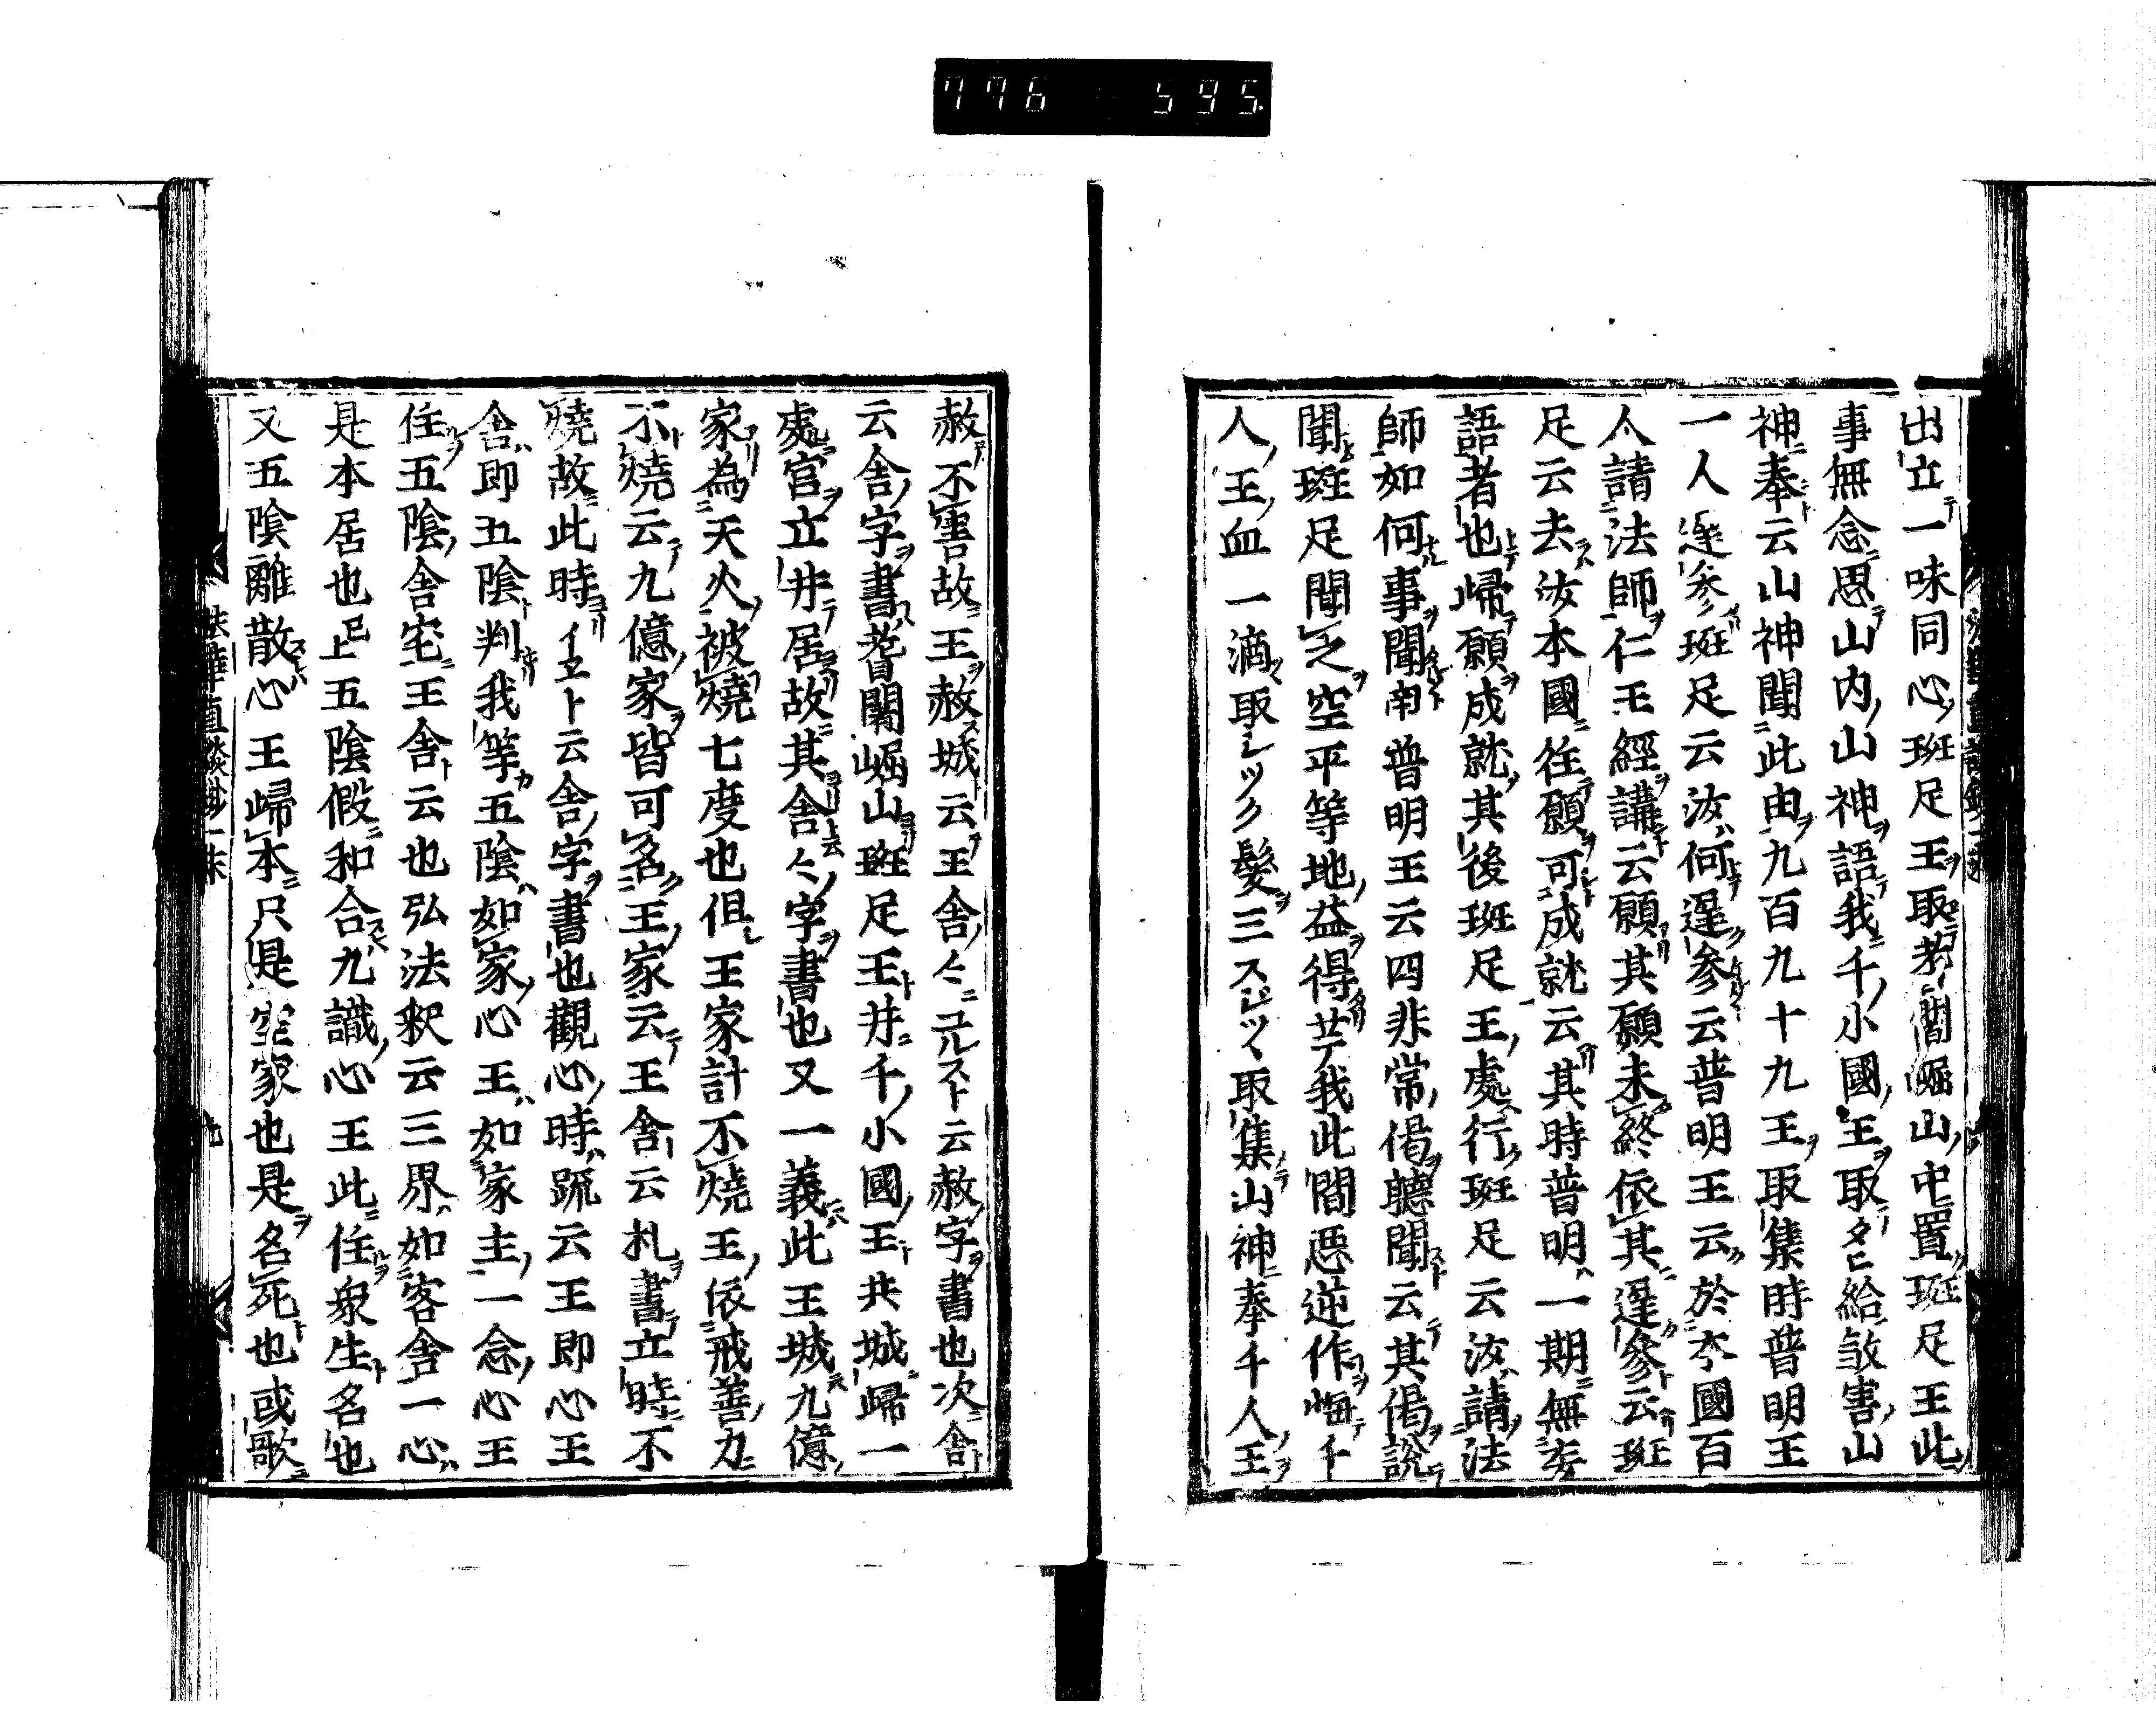 776 595.
出立一味同心班足王取耆闍崛山中置班足王此
事無念思山内山神語我千小國王取タヒ給殺害山
神奉云山神聞此由九百九十九王取集時普明王
一人遲參班足云汝何遲參云普明王云於本國百
人請法師仁王經講云願其願未終依其遲參云班
足云去汝本國徃願可成就云其時普明一期無妄
語者也歸願成就其後班足王處行班足云汝請法
師如何事聞南普明王云四非常偈聽聞云其偈説
聞班足聞之空平等地益得サテ我此間悪逆作悔千
人王血一滴取レツク髮三スビツヽ取集山神奉千人王
赦不害故王赦城云王舎々ニユルスト云赦字書也次舎
云舎字書耆闍崛山班足王并千小國王共城歸一
處宮立并居故其舎々字書也又一義此王城九億
家為天火被燒七度也但王家計不燒王依戒善力
不燒云九億家皆可名王家云王舎云札書立時不
燒故此時イヱト云舎字書也觀心時䟽云王即心王
舎即五陰判我等五陰如家心王如家主一念心王
住五陰舎宅王舎云也弘法釈云三界如客舎一心
是本居也已上五陰假和合九識心王此住衆生名也
又五陰離散心王歸本只是空家也是名死也或歌
法華直談鈔一末